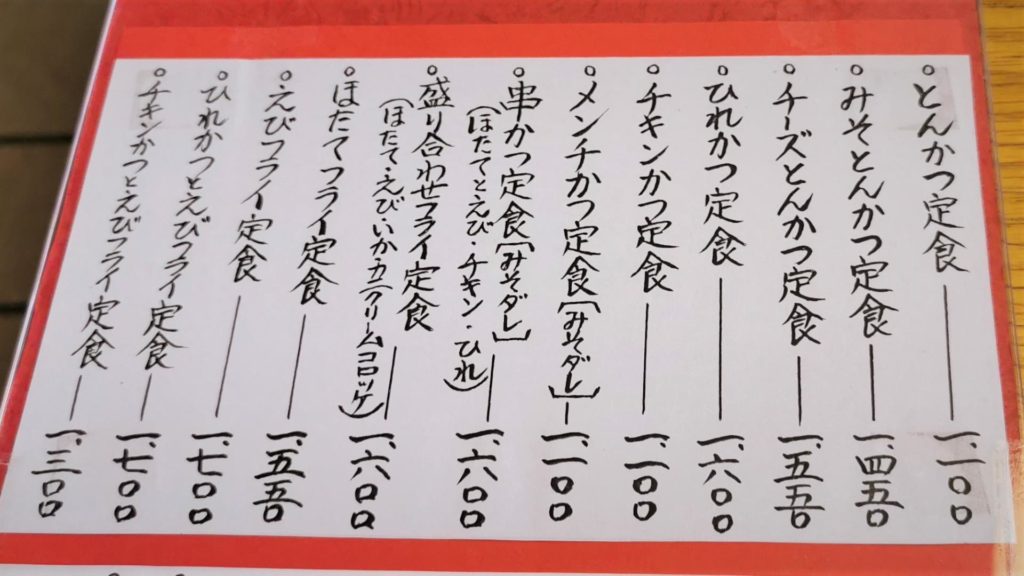 ○とんかつ定食―一、一〇〇
○みそとんかつ定食―一、四五〇
○チーズとんかつ定食―一、五五〇
○ひれかつ定食―一、六〇〇
○チキンかつ定食―一、一〇〇
○メンチかつ定食[みそダレ]―一、一〇〇
○串かつ定食[みそダレ]
(ほたてとえび・チキン・ひれ)―一、六〇〇
○盛り合わせフライ定食
(ほたて・えびいかカニクリームコロッケ)―一、六〇〇
○ほたてフライ定食―一、五五〇
○えびフライ定食―一、七〇〇
○ひれかつとえびフライ定食―一、七〇〇
○チキンかつとえびフライ定食―一、三〇〇